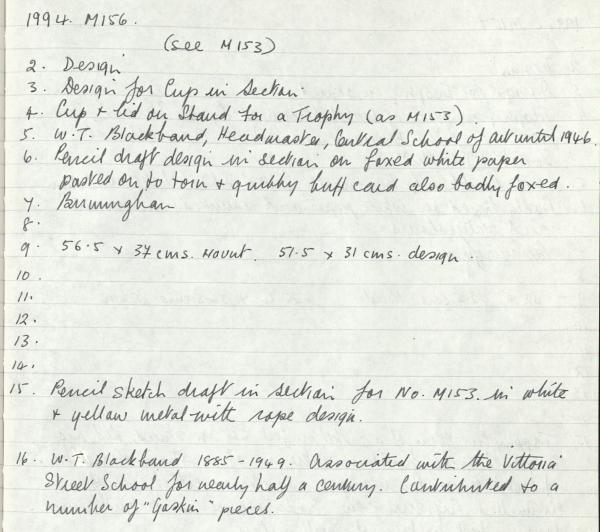 1994. M156.
(see M153)
2. Design
3. Design for Cup in Section.
4. Cup + lid on Stand for a Trophy (as M153).
5. W.T. Blackband, Headmaster, Central School of art until 1946.
6. Pencil draft design in section on foxed white paper
pasted on to torn + grubby buff card also badly foxed.
7. Birmingham
8.
9. 56.5 x 37 cms. Mount. 51.5 x 31 cms. design.
10.
11.
12.
13.
14.
15. Pencil sketch draft in section for No. M153 in white
+ yellow metal with rope design.
16. W.T. Blackband 1885-1949. Associated with the Vittoria
Street School for nearly half a century. Contributed to a
number of "Gaskin" pieces.